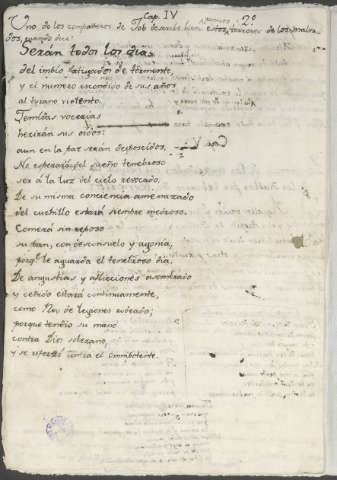 Cap. IV
2º
Uno de los compañeros de Job describe bien estos terrores de los malva-
dos, quando dice:
Serán todos los dias
del impio fatigados de tormento,
y el número escondido de sus años
al tyrano violento.
Temidas vocerias
herirán sus oidos:
aun en la paz serán desposeidos.
Cap. V
No esperará del sueño tenebroso
ser á la luz del cielo revocado,
De su misma conciencia amenazado
del cuchillo estará siempre medroso.
Comerá sin reposo
su pan, con desconsuelo y agonia,
porq.e le aguarda el tenebroso dia.
De angustias y aflicciones asombrado
y ceñido estará continuamente,
como Rey de legiones rodeado;
porque tendió su mano
contra Dios soberano,
y se esforzó contra el omnipotente.